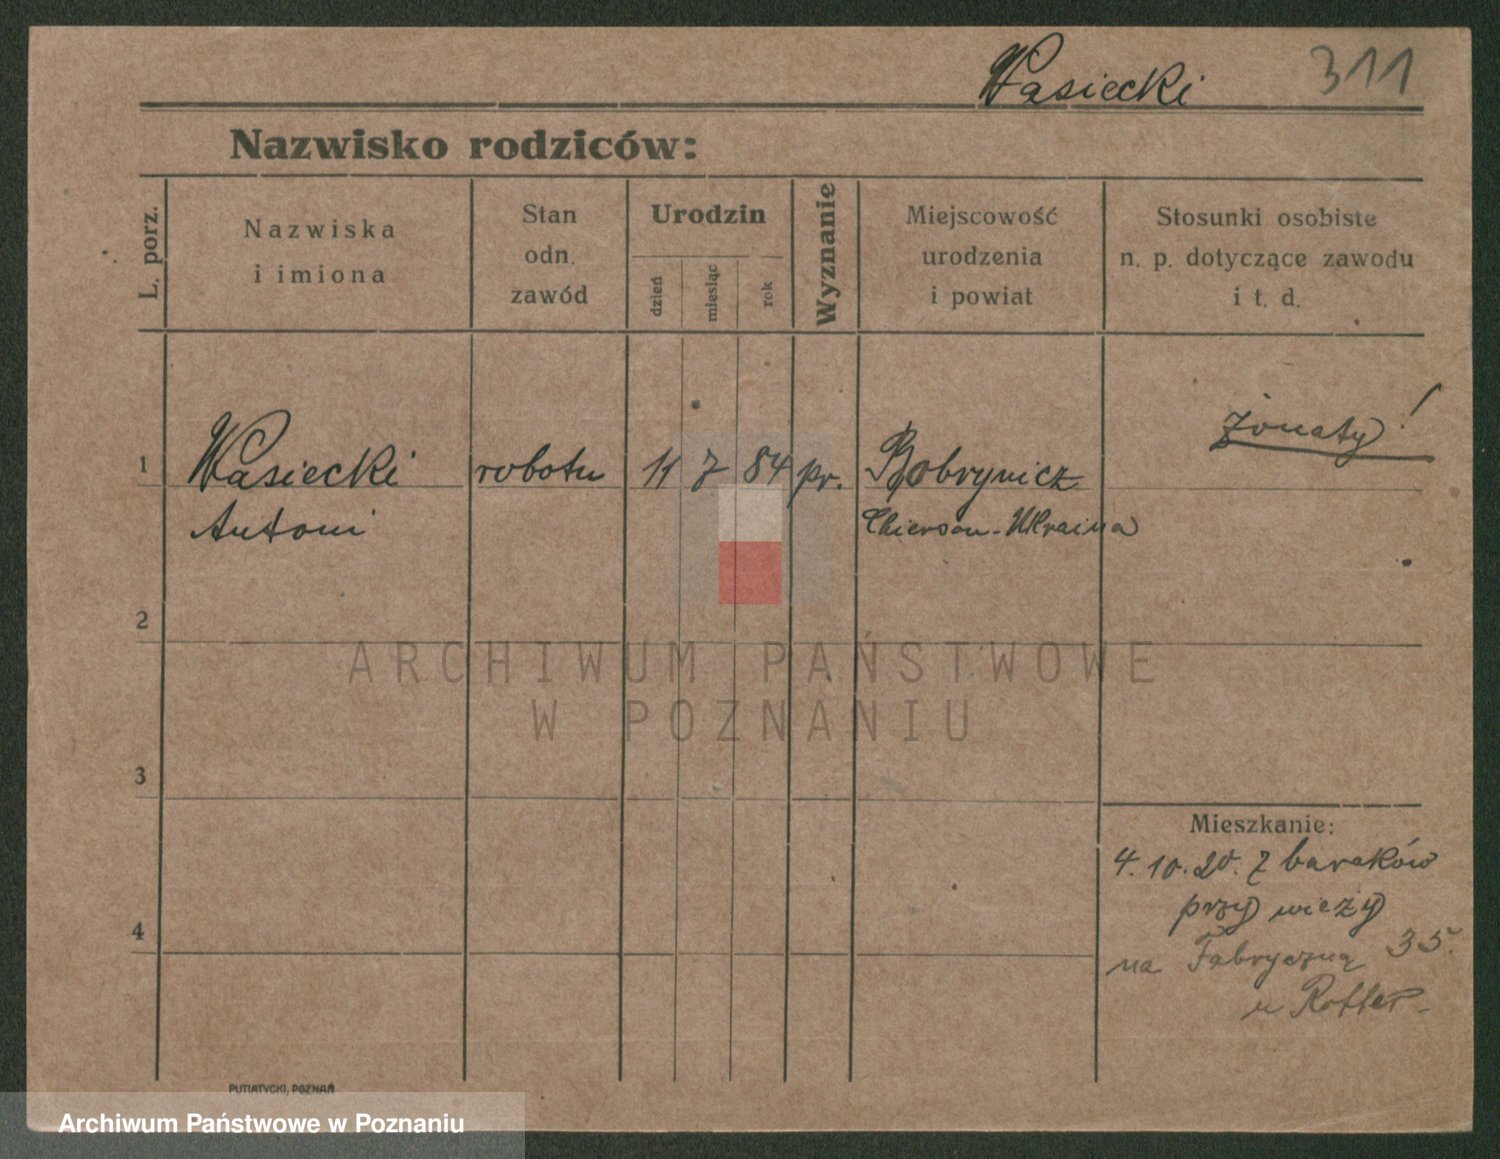 Wasiecki 311
Nazwisko rodziców:
L. porz.
Nazwiska
i imiona
Stan
odn.
zawód
Urodzin
dzień
miesiąc
rok
Wyznanie
Miejscowość
urodzenia
i powiat
Stosunki osobiste
n. p. dotyczące zawodu
i t. d.
żonaty!
1 Wasiecki robotn 11 7 84 pr. Bobrynicz
Antoni Chierson-Ukraina
2
3
4
Mieszkanie:
4.10.20. z baraków
przy wieży
na Fabryczną 35.
u
PUTIATYCKI, POZNAŃ
ARCHIWUM PAŃSTWOWE
W POZNANIU
Archiwum Państwowe w Poznaniu